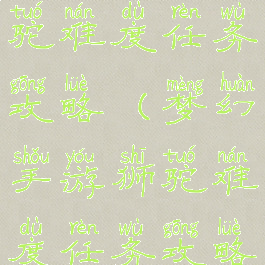 tuó nán dù rèn wù
驼难度任务
gōng lüè mèng huàn
攻略（梦幻
shǒu yóu shī tuó nán
手游狮驼难
dù rèn wù gōng lüè
度任务攻略